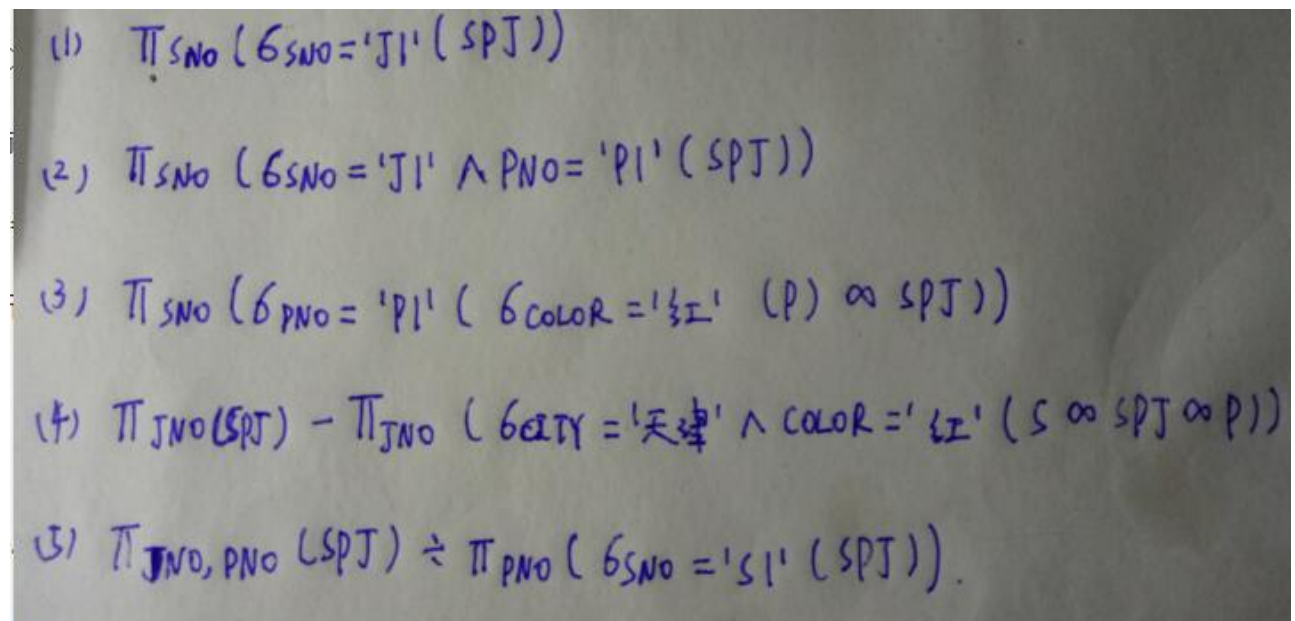 (1) π SNO (6 SNO='J1' (SPJ))
(2) π SNO (6 SNO='J1' ∧ PNO='P1' (SPJ))
(3) π SNO (6 PNO='P1' (6 COLOR='红' (P) ∞ SPJ))
(4) π JNO(SPJ) - π JNO (6 CITY='天津' ∧ COLOR='红' (S ∞ SPJ ∞ P))
(5) π JNO, PNO (SPJ) ÷ π PNO (6 SNO='S1' (SPJ)).